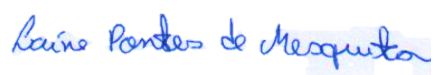 Laine Pontes de Mesquita